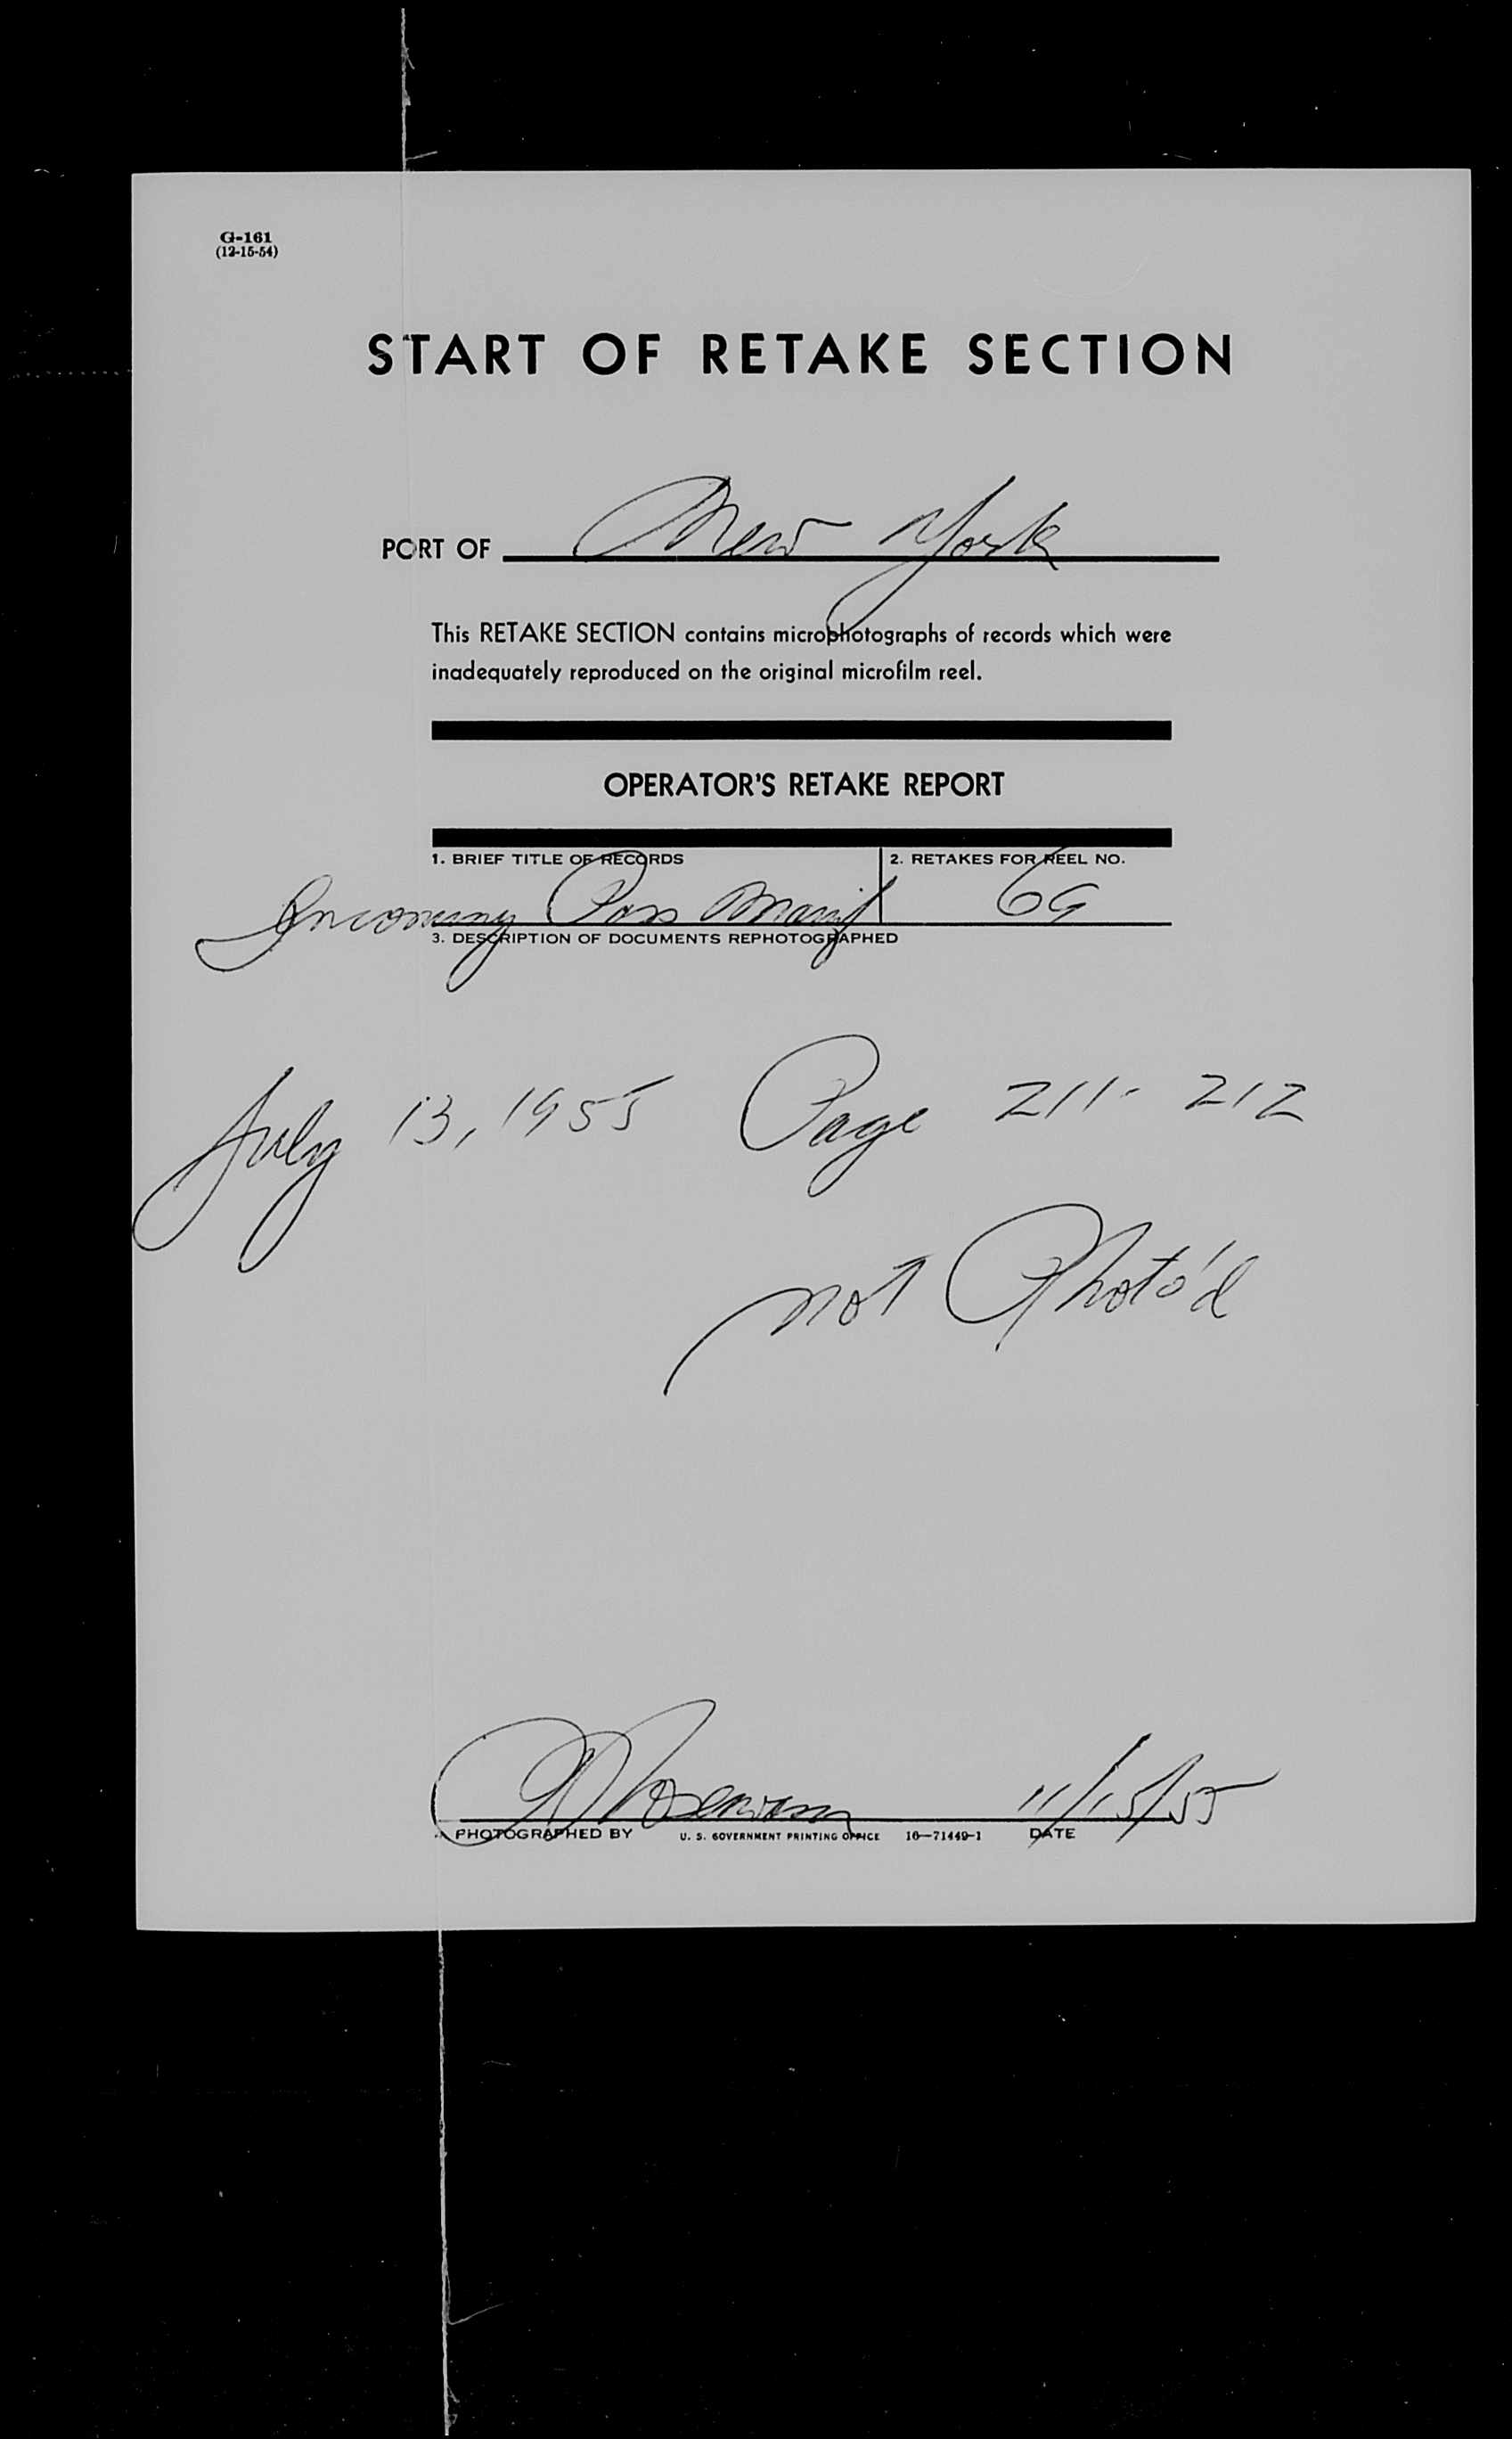 G-161
(12-15-54)
START OF RETAKE SECTION
PORT OF New York
This RETAKE SECTION contains microphotographs of records which were
inadequately reproduced on the original microfilm reel.
OPERATOR'S RETAKE REPORT
1. BRIEF TITLE OF RECORDS 2. RETAKES FOR REEL NO.
Incoming Pass Manif 69
3. DESCRIPTION OF DOCUMENTS REPHOTOGRAPHED
July 13, 1955 Page 211-212
not Photo'd
11/15/55
PHOTOGRAPHED BY U. S. GOVERNMENT PRINTING OFFICE 16—71449-1 DATE